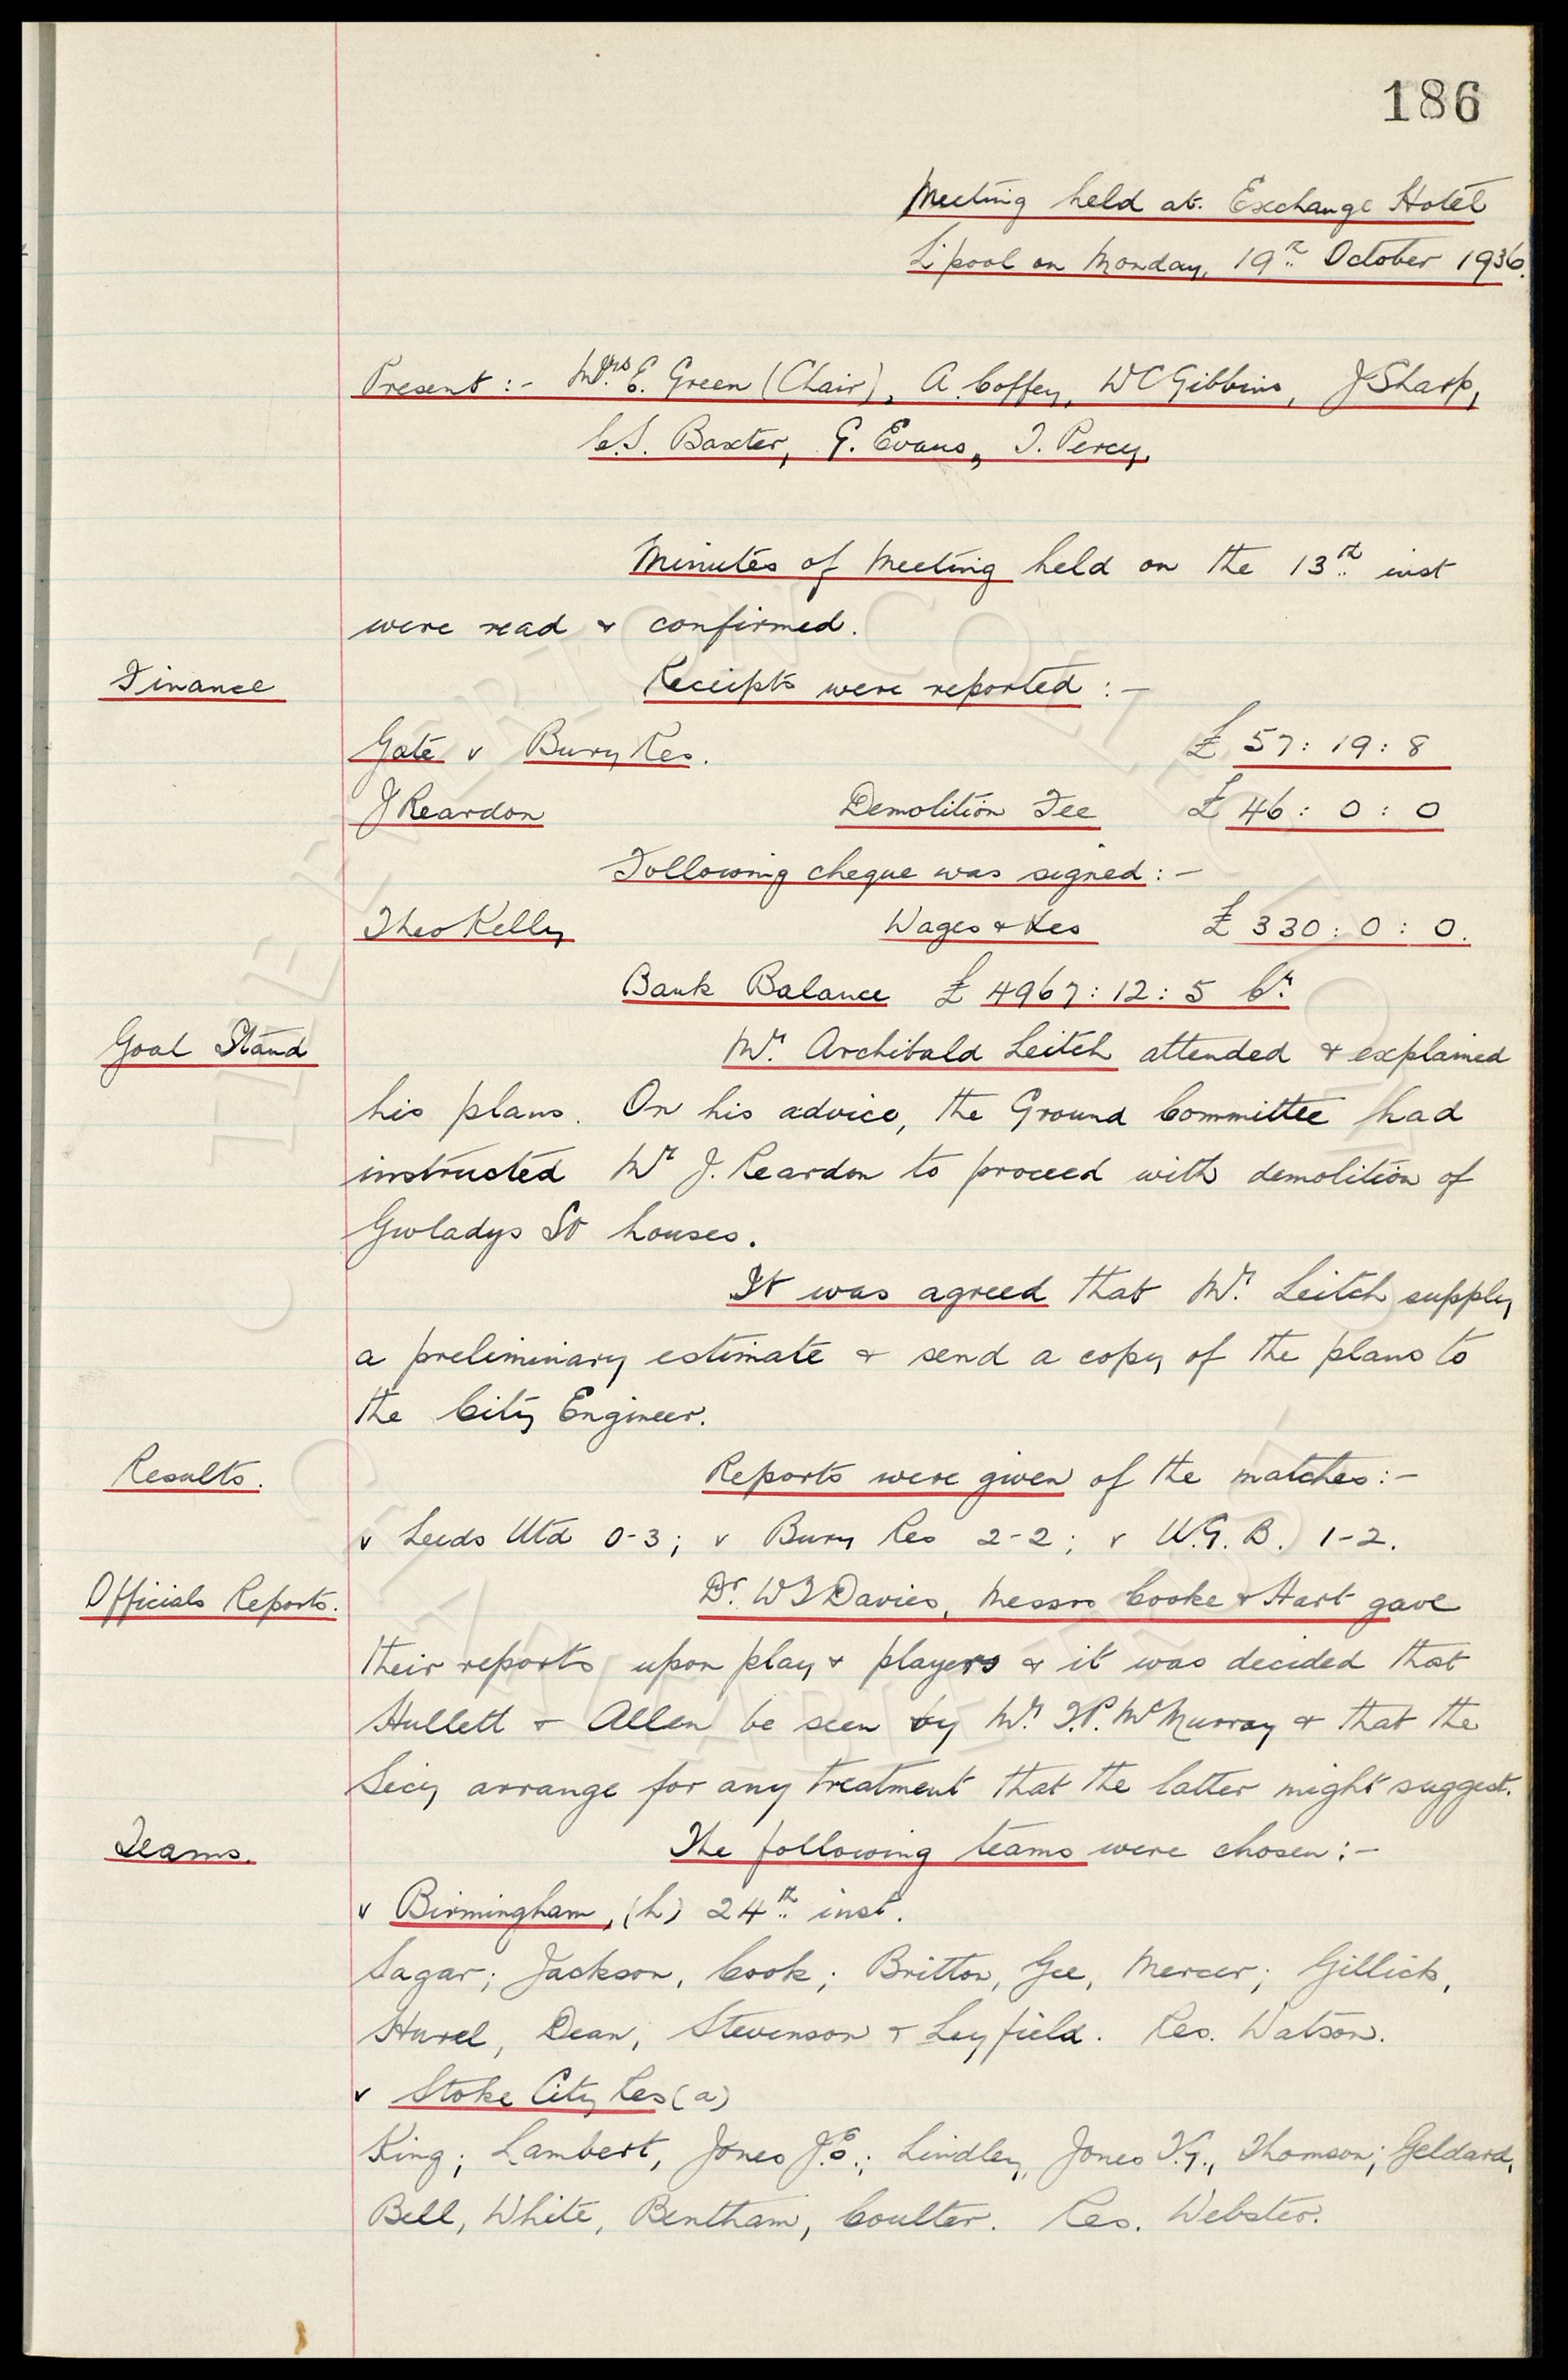 186
Meeting held at Exchange Hotel
L'pool on Monday, 19th October 1936.
Present :- Mrs E. Green (Chair), A. Coffey, W C Gibbins, J Sharp,
C.S. Baxter, G. Evans, T. Percy.
Minutes of Meeting held on the 13th inst
were read & confirmed.
Finance
Receipts were reported :-
Gate v Bury Res. £ 57 : 19 : 8
J Reardon Demolition Fee £ 46 : 0 : 0
Following cheque was signed :-
Theo Kelly Wages & Xes £ 330 : 0 : 0.
Bank Balance £ 4967 : 12 : 5 Cr.
Goal Stand
Mr. Archibald Leitch attended & explained
his plans. On his advice, the Ground Committee had
instructed Mr J. Reardon to proceed with demolition of
Gwladys St houses.
It was agreed that Mr. Leitch supply
a preliminary estimate & send a copy of the plans to
the City Engineer.
Results.
Reports were given of the matches :-
v Leeds Utd 0-3 ; v Bury Res 2-2 ; v W.G.B. 1-2.
Officials Reports.
Dr. W J Davies, Messrs Cooke & Hart gave
their reports upon play & players & it was decided that
Hullett & Allen be seen by Mr. T.P. McMurray & that the
Secy arrange for any treatment that the latter might suggest.
Teams.
The following teams were chosen :-
v Birmingham, (h) 24th inst.
Sagar; Jackson, Cook; Britton, Gee, Mercer; Gillick,
Hurel, Dean, Stevenson & Leyfield. Res. Watson.
v Stoke City Res (a)
King; Lambert, Jones J.E.; Lindley, Jones T.G., Thomson; Geldard,
Bell, White, Bentham, Coulter. Res. Webster.